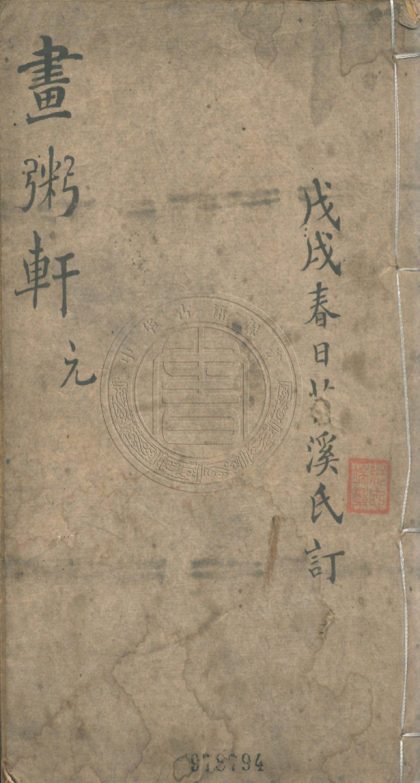 戊戌春日溪氏訂
畫粥軒元
978794